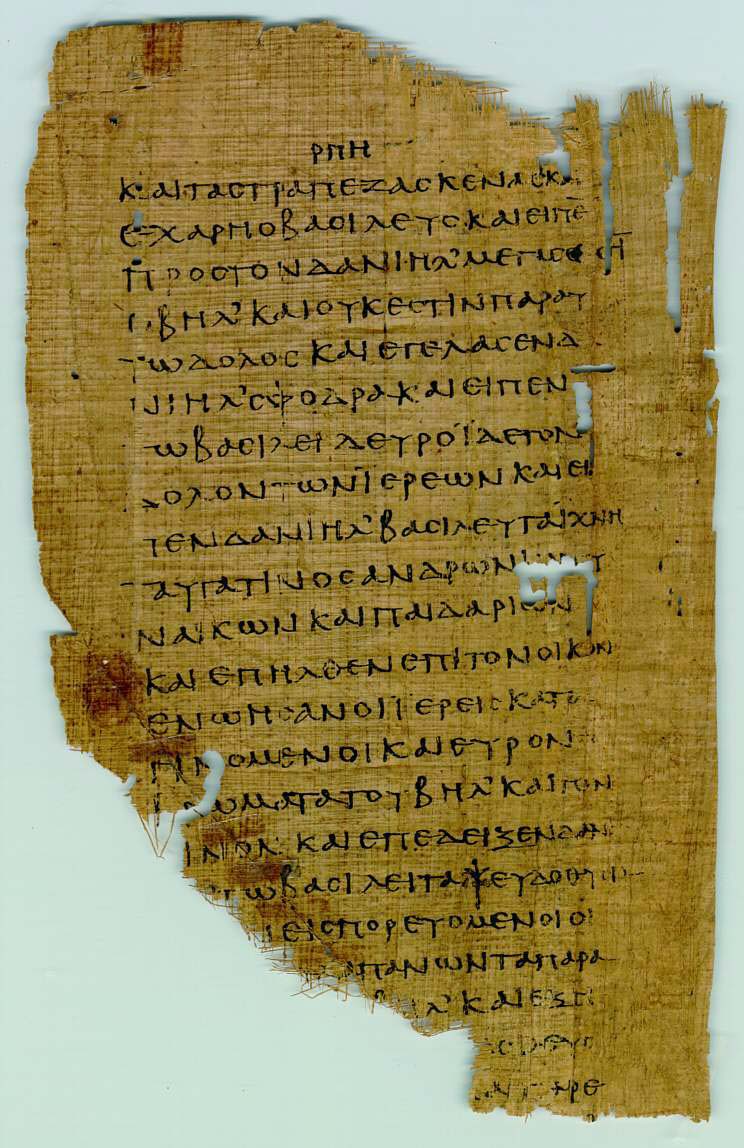 ΡΠΗ
ΚΑΙΤΑϹΤΡΑΠΕΖΑϹΚΕΝΑϹΚΑΙ
ΕΧΑΡΗΟΒΑϹΙΛΕΥϹΚΑΙΕΙΠΕ̅
ΠΡΟϹΤΟΝΔΑΝΙΗΛ’ΜΕΓΑϹ
ΒΗΛ’ΚΑΙΟΥΚΕϹΤΙΝΠΑΡΑΥ
ΤΩΔΟΛΟϹΚΑΙΕΓΕΛΑϹΕΝΔΑ
ΝΙΗΛ’ϹΦΟΔΡΑΚΑΙΕΙΠΕΝ
ΤΩΒΑϹΙΛΕΙΔΕΥΡΟΪΔΕΤΟΝ
ΔΟΛΟΝΤΩΝΪΕΡΕΩΝΚΑΙΕΙ
ΠΕΝΔΑΝΙΗΛ’ΒΑϹΙΛΕΥΤΑΪΧΝΗ
ΤΑΥΤΑΤΙΝΟϹΑΝΔΡΩΝ
ΝΑΙΚΩΝΚΑΙΠΑΙΔΑΡΙΩΝ
ΚΑΙΕΠΗΛΘΕΝΕΠΙΤΟΝΟΙΚΟΝ
ΕΝΩΗϹΑΝΟΙΪΕΡΕΙϹΚΑΤΑ
ΓΙΝΟΜΕΝΟΙΚΑΙΕΥΡΟΝ
ΡΩΜΑΤΑΤΟΥΒΗΛ’ΚΑΙΤΟΝ
ΙΝΟΝΚΑΙΕΠΕΔΕΙΞΕΝΔΑΝΙ
ΤΩΒΑϹΙΛΕΙΤΑΨΕΥΔΟΘΥΡΙ
ΕΙϹΠΟΡΕΥΟΜΕΝΟΙΟΙ
ΑΠΑΝΩΝΤΑΠΑΡΑ
ΗΛ’ΚΑΙΕΞΗ